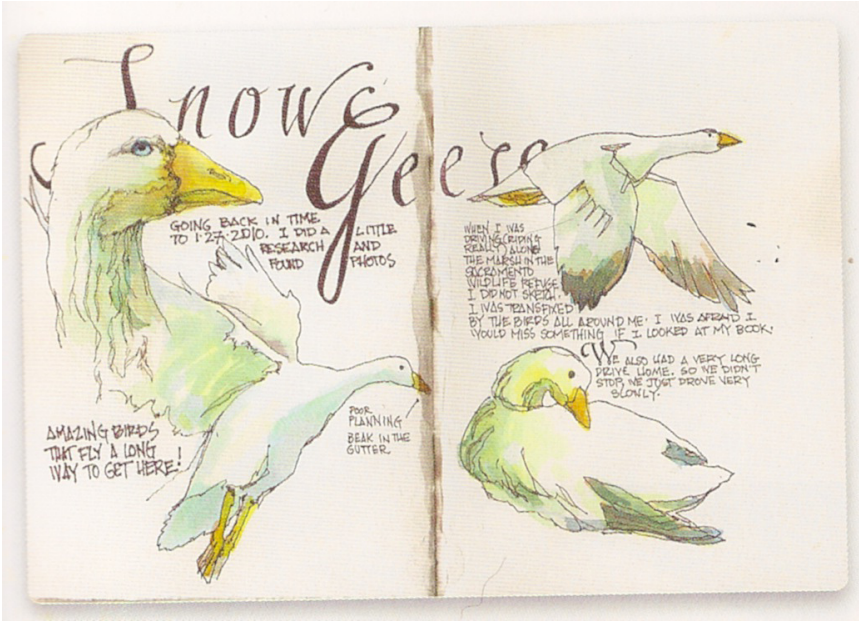 Snow
Geese
GOING BACK IN TIME
TO 1·27·2010. I DID A LITTLE
RESEARCH AND
FOUND PHOTOS
AMAZING BIRDS
THAT FLY A LONG
WAY TO GET HERE!
POOR
PLANNING
BEAK IN THE
GUTTER
WHEN I WAS
DRIVING (RIDING
REALLY) ALONG
THE MARSH IN THE
SACRAMENTO
WILDLIFE REFUGE
I DID NOT SKETCH.
I WAS TRANSFIXED
BY THE BIRDS ALL AROUND ME. I WAS AFRAID I
WOULD MISS SOMETHING IF I LOOKED AT MY BOOK.
WE ALSO HAD A VERY LONG
DRIVE HOME. SO WE DIDN'T
STOP, WE JUST DROVE VERY
SLOWLY.